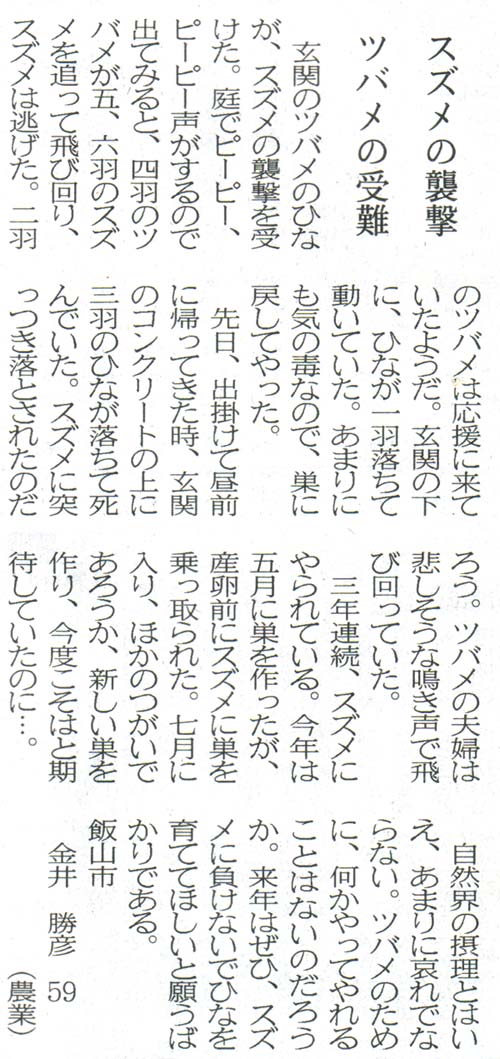 スズメの襲撃
ツバメの受難
玄関のツバメのひな
が、スズメの襲撃を受
けた。庭でピーピー、
ピーピー声がするので
出てみると、四羽のツ
バメが五、六羽のスズ
メを追って飛び回り、
スズメは逃げた。二羽
のツバメは応援に来て
いたようだ。玄関の下
に、ひなが一羽落ちて
動いていた。あまりに
も気の毒なので、巣に
戻してやった。
先日、出掛けて昼前
に帰ってきた時、玄関
のコンクリートの上に
三羽のひなが落ちて死
んでいた。スズメに突
っつき落とされたのだ
ろう。ツバメの夫婦は
悲しそうな鳴き声で飛
び回っていた。
三年連続、スズメに
やられている。今年は
五月に巣を作ったが、
産卵前にスズメに巣を
乗っ取られた。七月に
入り、ほかのつがいで
あろうか、新しい巣を
作り、今度こそはと期
待していたのに…。
自然界の摂理とはい
え、あまりに哀れでな
らない。ツバメのため
に、何かやってやれる
ことはないのだろう
か。来年はぜひ、スズ
メに負けないでひなを
育ててほしいと願うば
かりである。
飯山市
金井 勝彦 59
（農業）